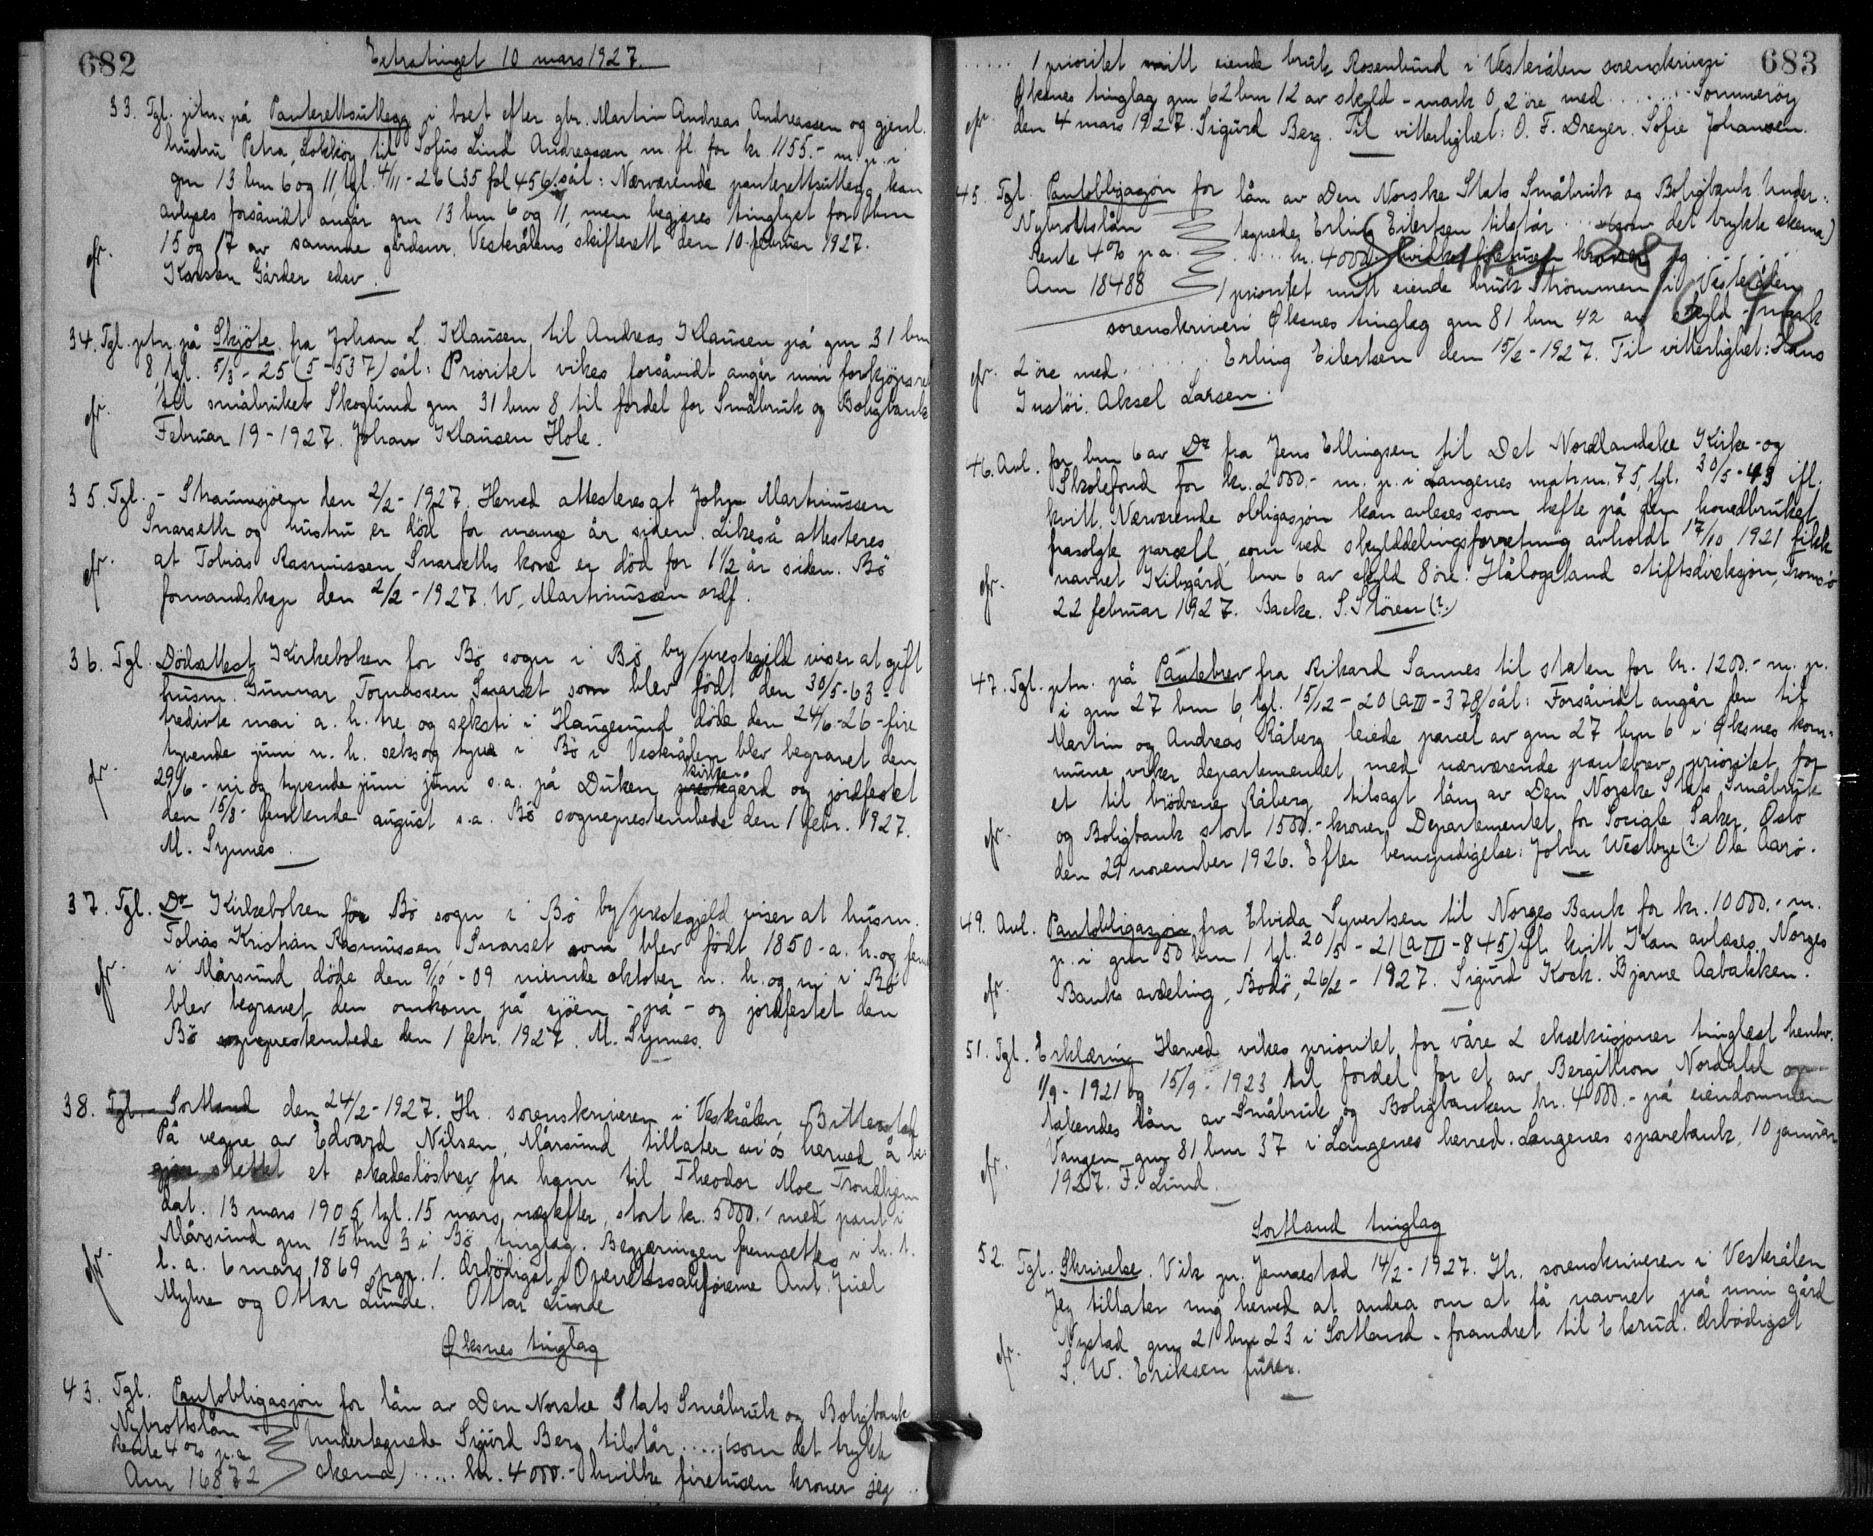 682
Extratinget 10 mars 1927.
33. Tgl. ptn. på Panterettsutlegg i boet efter gbr. Martin Andreas Andreassen og gjenl.
hustru Petra, Lokköy til Sofus Lind Andreassen m. fl. for kr. 1155.- m. p. i
gnr 13 bnr 6 og 11, tgl. 4/11-26 (35 fol 456) sål: Nærværende panterettsutlegg kan
avlyses forsåvidt angår gnr 13 bnr 6 og 11, men begjæres tinglyst for bnr
15 og 17 av samme gårdsnr. Vesterålens skifterett den 10 februar 1927.
Karsten Gårder edsv.
34. Tgl. ptn. på Skjöte fra Johan L. Klausen til Andreas Klausen på gnr 31 bnr
8 tgl. 5/3-25 (5-537) sål: Prioritet vikes forsåvidt angår min forkjøpsret
til småbruket Skoglund gnr 31 bnr 8 til fordel for Småbruk og Boligbank
Februar 19-1927. Johan Klausen Hole.
35. Tgl. - Straumsjøen den 2/2-1927. Herved attesteres at John Martinussen
Snarseth og hustru er död for mange år siden. Likeså attesteres
at Tobias Rasmussen Snarseths kone er död for 1 1/2 år siden. Bö
formandskap den 2/2-1927. W. Martinussen ordf.
36. Tgl. Dödsattest. Kirkeboken for Bö sogn i Bö by/prestegjeld viser at gift
husm. Gunnar Tomassen Snarset som blev födt den 30/5-63 -
tredivte mai a. h. tre og seksti i Haugesund döde den 24/6-26 - fire
tyvende juni n. h. seksog tyve i Bö i Vesterålen blev begravet den
29/6 - ni og tyvende juni s.a. på Duken kirkegård og jordfestet
den 15/8 - femtende august s.a. Bö sogneprestembede den 1 febr. 1927.
M. Synnes
37. Tgl. Do Kirkeboken for Bö sogn i Bö by/prestegjeld viser at husm.
Tobias Kristian Rasmussen Snarset som blev födt 1850 - a. h. og femti
i Mårsund döde den 9/10-09 niende oktober n. h. og ni i Bö
blev begravet den omkom på sjöen - på - og jordfestet den
Bö sogneprestembede den 1 febr. 1927. M. Synnes.
38. Tgl. Sortland den 24/2-1927. Hr. sorenskriveren i Vesterålen, Bitterstad
På vegne av Edvard Nilsen, Mårsund tillater vi os herved å be-
slettet et skadeslösbrev fra ham til Theodor Moe Trondhjem
dat. 13 mars 1905 tgl. 15 mars næstefter, stort kr. 5000.- med pant i
Mårsund gnr 15 bnr 3 i Bö tinglag. Begjæringen fremsettes i h. t.
l. a. 6 mars 1869 pgr. 1. Ærbödigst Overrettssakförerne Ant. Juel
Myhre og Ottar Lunde. Ottar Lunde
Øksnes tinglag
43. Tgl. Pantobligasjon for lån av Den Norske Stats Småbruk og Boligbank
Nybrottslån Undertegnede Sigurd Berg tilstår ..... (som det trykte
Rente 4% p.a.
Anr 16872 skema) ..... kr. 4000.- hvilke firetusen kroner jeg ..
683
..... 1 prioritet mitt eiende bruk Rosenlund i Vesterålen sorenskriveri
Øksnes tinglag gnr 62 bnr 12 av skyld - mark 0,2 öre med ....... Sommeröy
den 4 mars 1927. Sigurd Berg. Til vitterlighet: O. F. Dreyer. Sofie Johansen.
45. Tgl. Pantobligasjon for lån av Den Norske Stats Småbruk og Boligbank Under-
Nybrottslån tegnede Erling Eilertsen tilstår ... (som det trykte skema)
Rente 4% p.a. .... kr. 4000.- hvilke firetusen kroner jeg .....
Anr 18488 1 prioritet mitt eiende bruk Strømmen i Vesterålen
sorenskriveri Øksnes tinglag gnr 81 bnr 42 av skyld - mark
2 öre med ..... Erling Eilertsen den 15/2-1927. Til vitterlighet: Hans
Justöi. Aksel Larsen.
46. Avl. for bnr 6 av Do fra Jens Ellingsen til Det Nordlandske Kirke- og
Skolefond for kr. 2000.- m. p. i Langenes matr.nr. 75, tgl. 30/5-43 ifl.
kvitt. Nærværende obligasjon kan avleses som hefte på den hovedbruket
frasolgte parsell, som ved skylddelingsforretning avholdt 17/10 1921 fikk
navnet Kibgård bnr 6 av skyld 8 öre. Hålogaland stiftsdireksjon, Tromsö
22 februar 1927. Backe. S. Stören (?)
47. Tgl. ptn. på Pantebrev fra Rikard Sannes til staten for kr. 1200.- m. p.
i gnr 27 bnr 6, tgl. 15/12-20 (a III-378) sål: Forsåvidt angår den til
Martin og Andreas Råberg leiede parcel av gnr 27 bnr 6 i Øksnes kom-
mune viker departementet med nærværende pantebrev prioritet for
et til brödrene Råberg tilsagt lån av Den Norske Stats Småbruk
og Boligbank stort 1500.- kroner Departementet for Sociale Saker, Oslo
den 29 november 1926. Efter bemyndigelse: John Westbye (?) Ole Aarö.
49. Avl. Pantobligasjon fra Elvida Syvertsen til Norges Bank for kr. 10000.- m.
p. i gnr 50 bnr 1 tgl. 20/5-21 (a III-845) ifl. kvitt Kan avleses, Norges
Banks avdeling, Bodö, 26/2-1927. Sigurd Kock. Bjarne Aabakken.
51. Tgl. Erklæring Herved vikes prioritet for våre 2 eksekusjoner tinglæst henhv.
1/9-1921 og 15/9-1923 til fordel for et av Bergitton Nordahl op-
takendes lån av Småbruk og Boligbanken kr. 4000.- på eiendommen
Vangen gnr 81 bnr 37 i Langenes herred. Langenes sparebank, 10 januar
1927. F. Lund
Sortland tinglag
52. Tgl. Skrivelse. Vik pr. Jennestad 14/2-1927. Hr. sorenskriveren i Vesterålen
Jeg tillater mig herved at andra om at få navnet på min gård
Nystad gnr 21 bnr 23 i Sortland - forandret til Ekrud. Ærbödigst
S. W. Eriksen